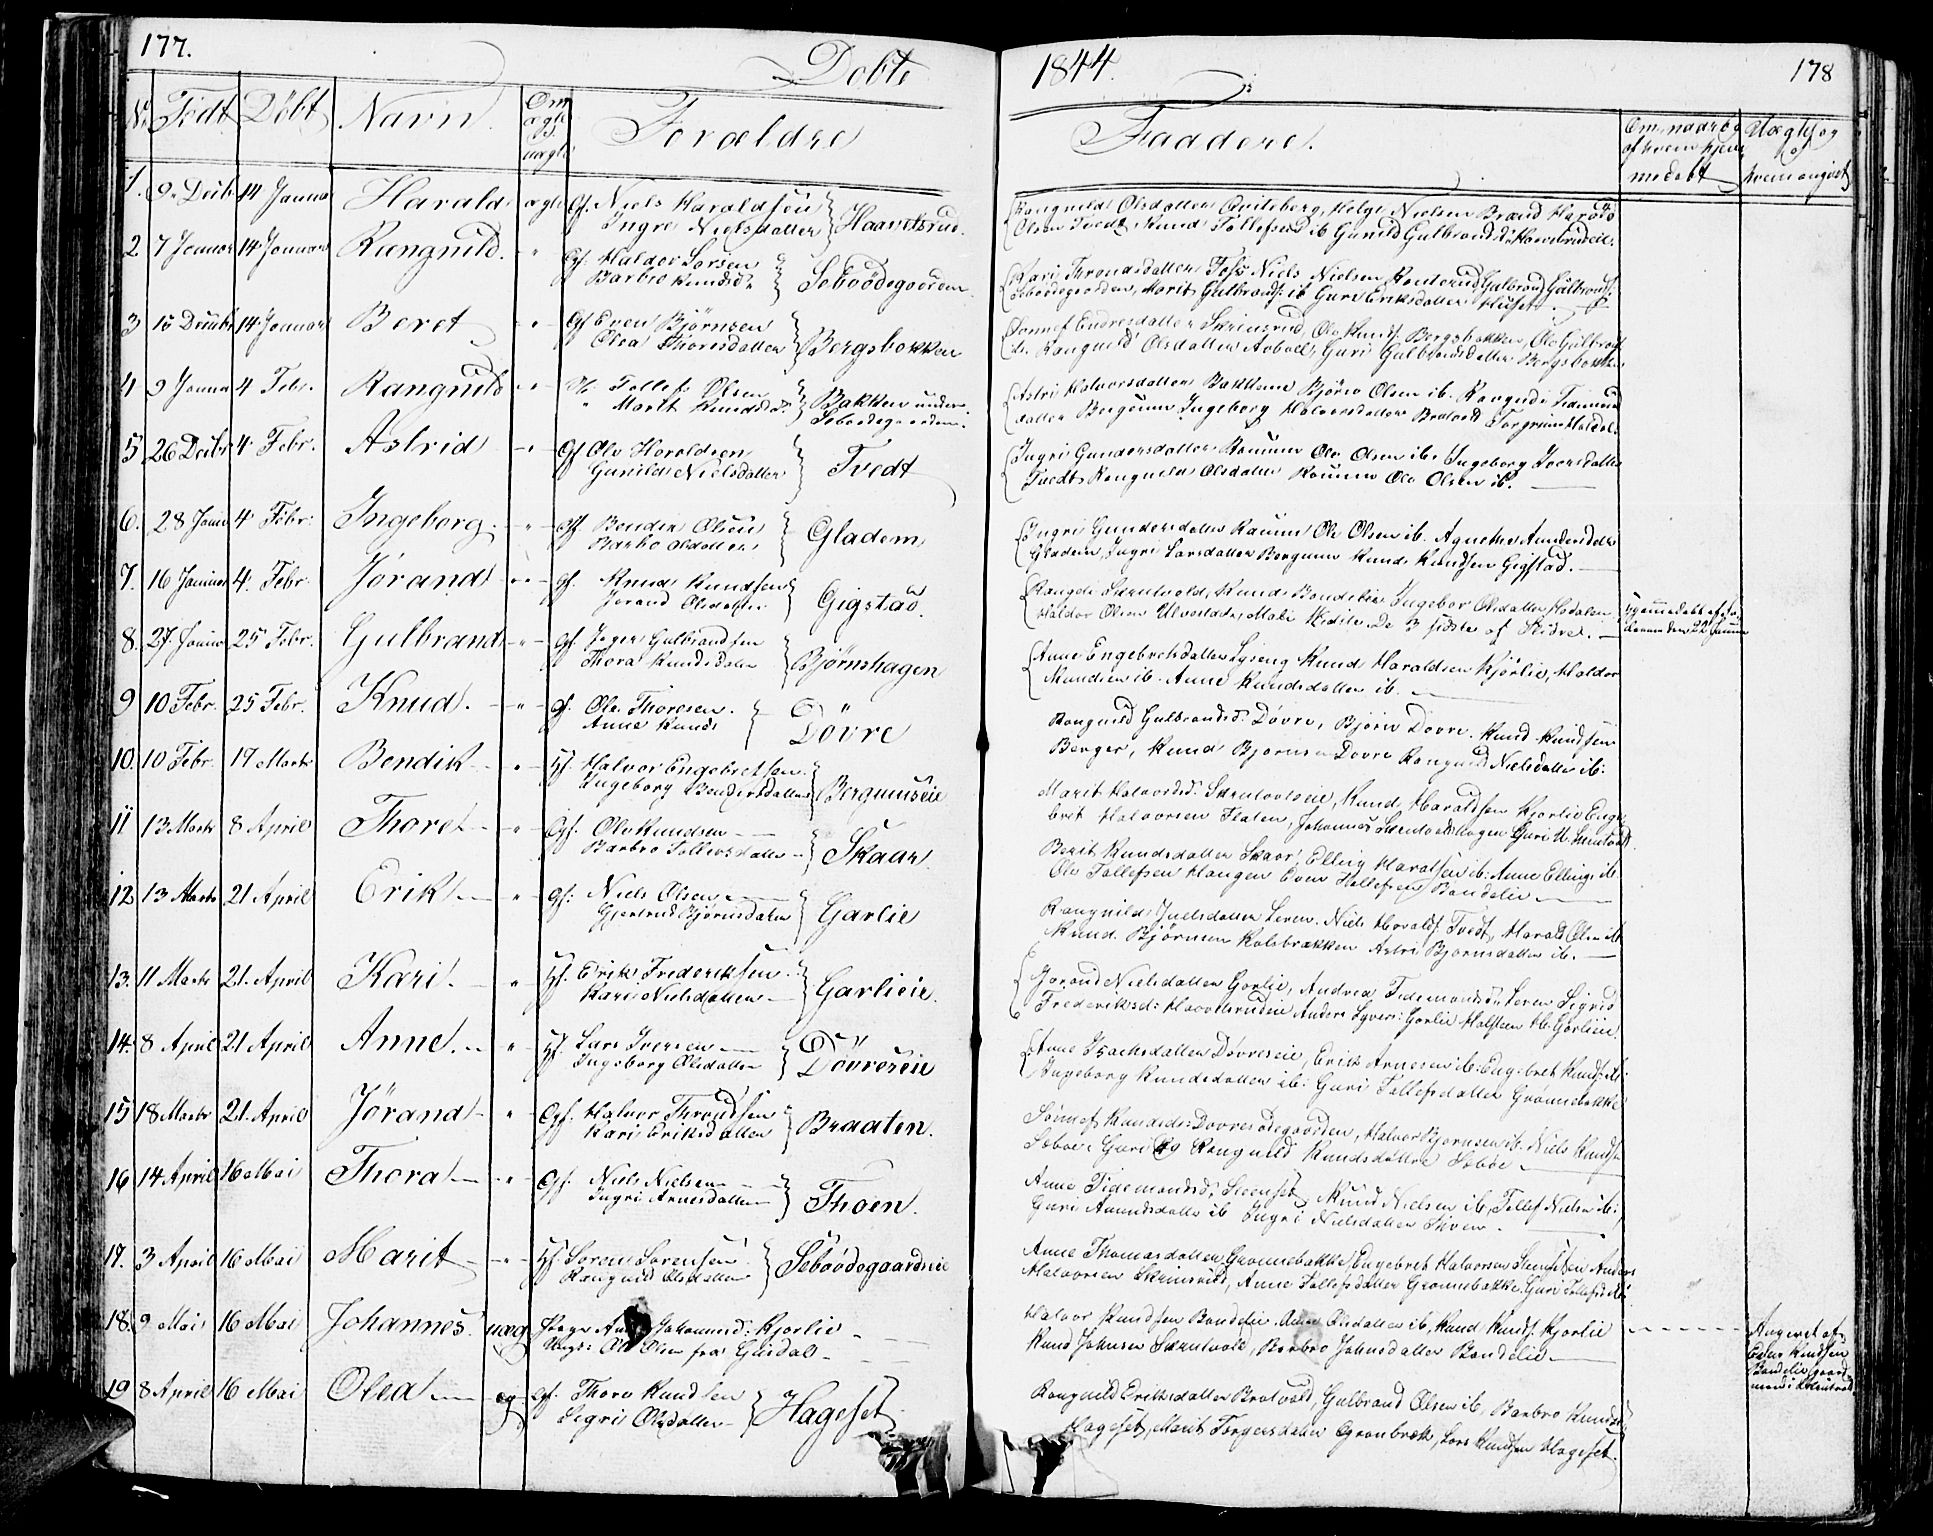 177.
Døbte
1844.
178
No
Født
Døbt
Navn
Om ægte el. uægte
Forældre
Faddere.
Om, naar og af hvem hjemmedøbt
Uægte og
hvem angivet
1. 9. Decbr 14 Januar Harald ægte Gf. Niels Haraldsen
Ingri Nielsdatter } Haavelsrud.
Rangnild Olsdatter Qviteberg, Helge Nielsen Brand Harald
Olsen Tvedt, Knud Tollefsrud ib Gunild Gulbrandsd. Haavelsrudeie.
2 7 Januar 14 Januar Rangnild. " Gf. Haldor Larsen
Barbro Knudsd. } Seboödegaarden.
Kari Throndsdatter Foss Niels Nielsen Gulbrand Gulbrands.
Seboödegaarden, Marit Gulbrandsd. ib Guri Eriksdatter
3 15 Decembr 14 Januar Beret " Gf Even Bjørnsen
Olea Thoresdatter } Bergsbakken
Sønnef Endresdatter Skrinsrud, Ole Knuds. Bergsbakken, Ole Gulbrands.
ib. Rangnild Olsdatter Guri Gulbrandsdatter Bergsbakken
4 9 Januar 4 Febr. Rangnild " Tollef Olsen
Marit Knudsd. } Bakken under
Seboödegaarden.
Astri Halvorsdatter Bakkene Bjørn Olsen ib. Rangnild Tidemands
datter Bergsund Ingeborg Halvorsdatter Bratvold Torgrim
5 26 Decbr 4. Febr. Astrid " Gf Ole Haroldsen
Gunild Nielsdatter } Tvedt
Ingri Gundersdatter Raumme Ole Olsen ib. Ingeborg Iversdatter
Tvedt, Rangnild Olsdatter Raumme Ole Olsen ib.
6. 28 Janu 4 Febr. Ingeborg. " Gf Bendix Olsen
Barbo Olsdatter } Gladem
Ingri Gundersdatter Raumme Ole Olsen ib. Agnethe Andersdatter
Gladem, Ingri Larsdatter Bergsund Knud Knudsen Gigstad.
7. 16 Januar 4. Febr. Jørand " Gf. Knud Knudsen
Jorand Olsdatter } Gigstad.
Rangdi Skrutvold, Knud Bendelie Ingebor Olsdatter
Haldor Olsen Ulvestad, Mali De 3 sidste af Slidre.
hjemmedøbt af
den 22 Januar
8. 27. Januar 25 Febr. Gulbrand " Gf Inger Gulbrandsen
Thora Knudsdatter } Bjørnshagen
Anne Engebretsdatter Lyseng Knud Haraldsen Kjörlie, Haldor
Knudsen ib. Anne Knudsdatter ib.
9 10 Febr. 25 Febr. Knud. " Gf. Ole Thoresen.
Anne Knuds } Dövre
Rangnild Gulbrandsd. Dovre, Bjørn Dovre. Knud Knudsen
Berger, Knud Bjørnsen Dovre Rangnild Nielsdatter ib.
10. 10 Febr. 17 Marts Bendik " Hf. Halvor Engebretsen.
Ingeborg Bendixsdatter } Bergumseie
Marit Halvorsd. Skrutvoldseie, Knud Haraldsen Kjörlie Enge-
bret Halvorsen Flaten, Johannes Skrutvoldshagen Guri H. Skrutvold
11 13 Marts 8 April Thore " Gf. Ole Knudsen
Barbro Tollefsdatter } Skaar.
Berit Knudsdatter Skaar, Elling Haraldsen ib. Anne Ellings. ib.
Ole Tollefsen Haugen Even Bendelie
12 13 Marts 21 April Erik " Gf: Niels Olsen
Gjertrud Bjørnsdatter } Garlie
Rangnild Juelsdatter Leren. Niels Haralds. Tvedt, Harald Olsen ib
Knud. Bjørnsen Kalsbrækken Astri Bjørnsdatter ib.
13. 11 Marts 21 April Kari. " Hf. Erik Frederiksen.
Kari Nielsdatter } Garlieie.
Jorand Nielsdatter Garlie, Andrea Tidemandsd. Leren Sigrid
Frederiksd. Haavelsrudeie Anders Syvers: Garlie Halsten H. Garlieie.
14. 8 April 21 April Anne. " Hf. Lars Iversen
Ingeborg Olsdatter } Dövreseie
Anne Isachsdatter Dövreseie, Erik Arnesen ib. Engebret Knuds: ib.
Ingeborg Knudsdatter ib. Guri Tollefsdatter Grønnebakke
15 18 Marts 21. April Jörand " Gf. Halvor Throndsen
Kari Eriksdatter } Braaten.
Sønnef Knudsd: Dovresødegaarden, Halvor Bjørnsen ib. Niels Knuds.
Seboe. Guri og Rangnild Knudsdøttre Seböe.
16 14 April 16 Mai Thora " Gf. Niels Nielsen
Ingri Arnesdatter } Thoen.
Anne Tidemandsd. Steenset, Knud Nielsen ib. Tollef Nielsen ib.
Guri Amundsdatter ib Ingri Nielsdatter Thoen.
17. 3 April 16 Mai Marit " Hf. Soren Sørensen
Rangnild Olsdatter } Seboödegaardseie
Anne Thomasdatter Grønnebakke, Engebret Halvorsen Anders
Halvorsen Skrinsrud, Anne Tollefsdatter Grønnebakke, Guri Tollefsd. ib.
18. 9 Mai 16 Mai Johannes. uægte Pige Johannesd: Kjorlie
Ungk: Ole Olsen fra Gulsdal
Halvor Knudsen Bendelie. Olsdatter ib, Knud Knuds. Kjorlie
Knud Johnsen Skrutvold, Barbro Johnsdatter Bendelie
Angivet af
Even Knudsen
Bendelie gaard
mand i Skrutvold
19 8 April 16 Mai Olea ægte Gf. Thore Knudsen
Sigri Olsdatter } Hageset
Rangnild Eriksdatter Bratvold, Gulbrand Olsen ib, Barbro Knudsd.
Hageset, Marit Torgersdatter Grønbræk, Lars Knudsen Hageset.